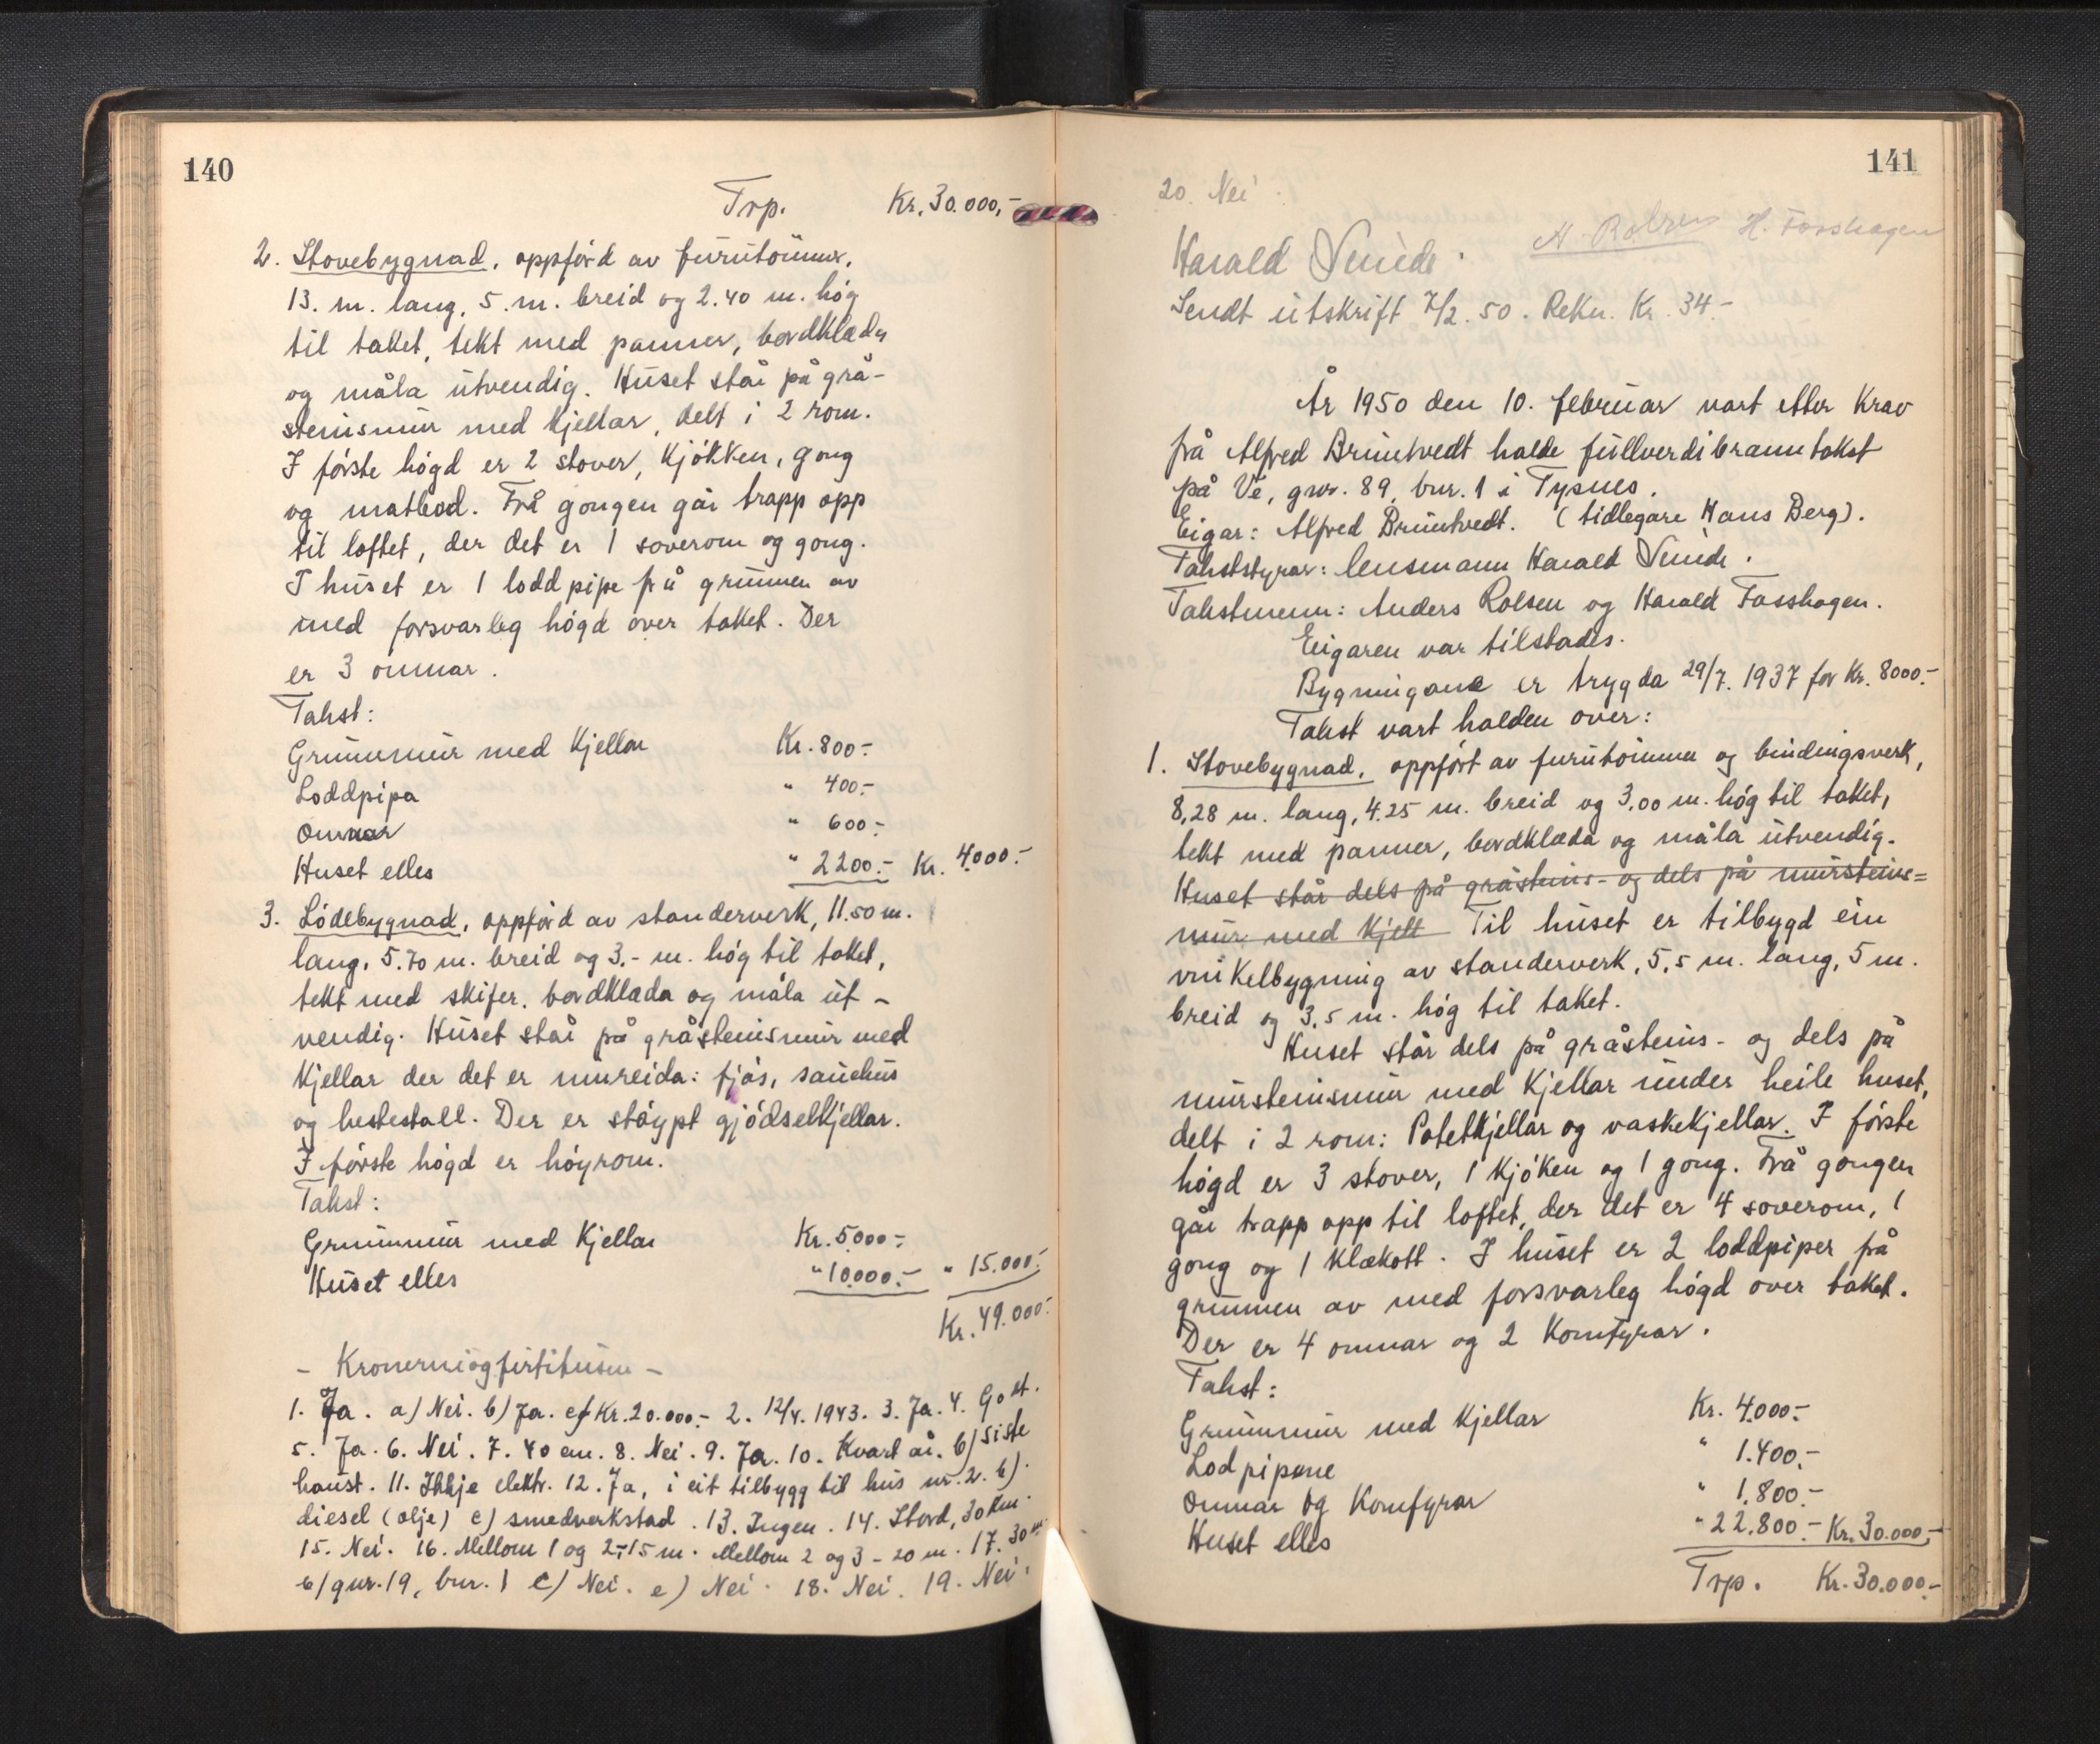 140
Trp. Kr. 30.000,-
2. Stovebygnad, oppförd av furutömmer,
13. m. lang, 5. m. breid og 2.40 m. hög
til taket, tekt med panner, bordklædd
og måla utvendig. Huset står på grå-
steinsmur med kjellar, delt i 2 rom.
I förste högd er 2 stover, kjökken, gong
og matbod. Frå gongen går trapp opp
til loftet, der det er 1 soverom og gong.
I huset er 1 loddpipe frå grunnen av
med forsvarleg högd over taket. Der
er 3 omnar.
Takst:
Grunnmur med kjellar Kr. 800.-
Loddpipa " 400.-
Omnar " 600.-
Huset elles " 2200.- Kr. 4000.-
3. Lödebygnad, oppförd av standerverk, 11.50 m.
lang, 5.70 m. breid og 3.- m. hög til taket,
tekt med skifer, bordklæda og måla ut-
vendig. Huset står på gråsteinsmur med
kjellar der det er innreida: fjös, sauehus
og hestestall. Der er stöypt gjödselkjellar.
I förste högd er höyrom.
Takst:
Grunnmur med kjellar Kr. 5000.-
Huset elles " 10.000.- " 15.000.-
Kr. 49.000.-
- Kronerniogførtitusen -
1. Ja. a) Nei. b) Ja. c) Kr. 20.000.- 2. 12/4. 1943. 3. Ja. 4. Godt.
5. Ja. 6. Nei. 7. 40 cm. 8. Nei. 9. Ja. 10. Kvart år. b) siste
haust. 11. Ikkje elektr. 12. Ja, i eit tilbygg til hus nr. 2. b)
diesel (olje) c) smedverkstad. 13. Ingen. 14. Stord, 30 km.
15. Nei. 16. Mellom 1 og 2,-15 m. Mellom 2 og 3 - 20 m. 17. 30 m.
b) gnr. 19, bnr. 1 c) Nei. e) Nei. 18. Nei. 19. Nei.
141
20. Nei.
Harald A. Rolsen H. Fasshagen
Sendt utskrift 7/2. 50. Rekn. Kr. 34.-
År 1950 den 10. februar vart etter krav
frå Alfred Bruntvedt halde fullverdibranntakst
på Ve, gnr. 89, bnr. 1 i Tysnes.
Eigar: Alfred Bruntvedt. (tidlegare Hans Berg).
Takststyrar: lensmann Harald
Takstmenn: Anders Rolsen og Harald Fasshagen.
Eigaren var tilstades.
Bygningane er trygda 29/7. 1937 for Kr. 8000.-
Takst vart halden over:
1. Stovebygnad, oppfört av furutömmer og bindingsverk,
8,28 m. lang, 4.25 m. breid og 3,00 m. hög til taket,
tekt med panner, bordklæda og måla utvendig.
Huset står dels på gråsteins- og dels på mursteins=
mur med kjell Til huset er tilbygd ein
vinkelbygning av standerverk, 5,5 m. lang, 5 m.
breid og 3,5 m. hög til taket.
Huset står dels på gråsteins- og dels på
mursteinsmur med kjellar under heile huset,
delt i 2 rom: Potetkjellar og vaskekjellar. I förste
högd er 3 stover, 1 kjöken og 1 gong. Frå gongen
går trapp opp til loftet, der det er 4 soverom, 1
gong og 1 klækott. I huset er 2 loddpiper frå
grunnen av med forsvarleg högd over taket.
Der er 4 omnar og 2 komfyrar.
Takst:
Grunnmur med kjellar Kr. 4000.-
Lodpipene " 1.400.-
Omnar og komfyrar " 1.800.-
Huset elles " 22.800.- Kr. 30.000.-
Trp. Kr. 30.000.-